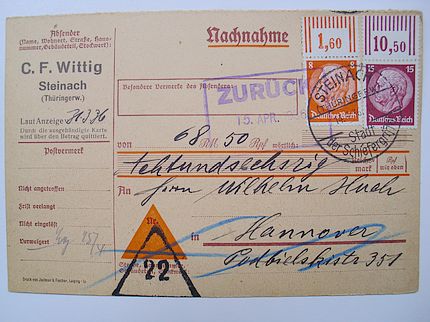 Absender
(Name, Wohnort, Straße, Haus-
nummer, Gebäudeteil, Stockwert):
Nachnahme
1,60
10,50
C. F. Wittig
Steinach
(Thüringerw.)
Laut Anzeige
Durch die ausgehändigte Karte
wird über den Betrag quittiert.
Besondere Vermerke des Absenders:
ZURÜCK
15. APR.
8
Deutsches Reich
15
Deutsches Reich
STEINACH
Stadt
der Schiefergr
Postvermerk
68 RM 50 Rpf wörtlich:
von
Achtundsechzig
mark Rpf wie oben
Nicht angetroffen
An Herrn Wilhelm
Frist verlangt
Nicht eingelöst
Verweigert
Nr.
22
in Hannover
Podbielskistr 351
Druck von Jackmar & Fischer, Leipzig